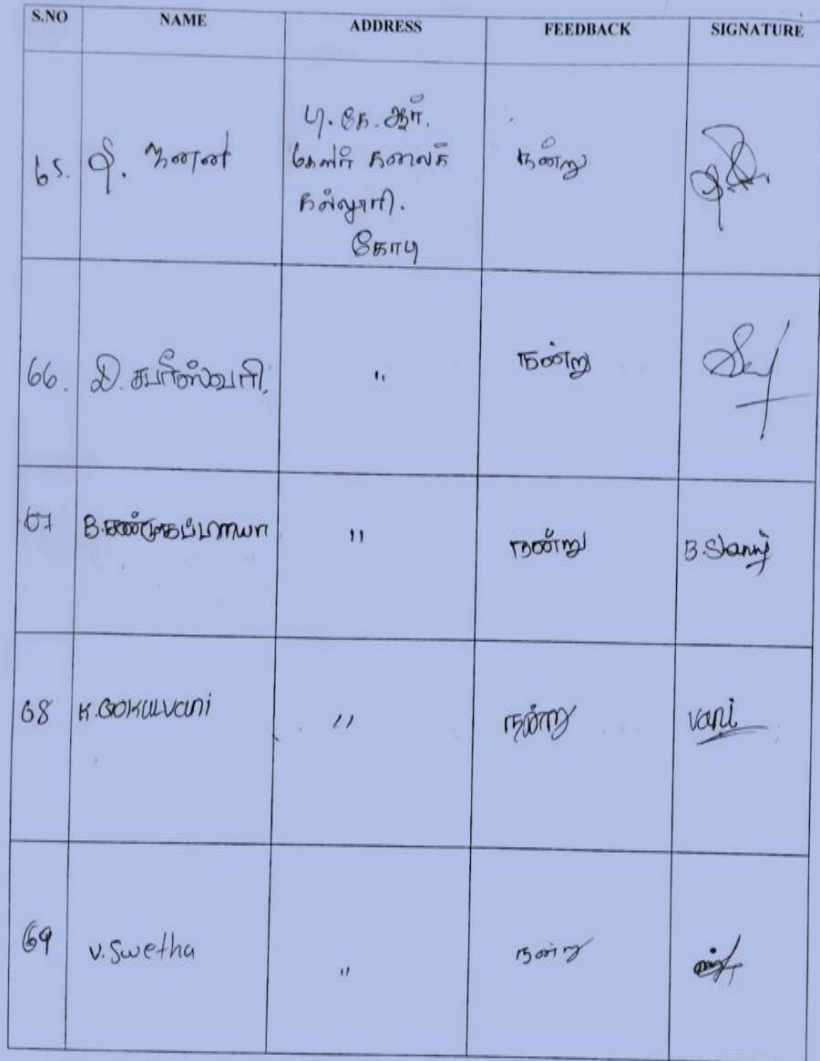 S.NO NAME ADDRESS FEEDBACK SIGNATURE
65. பி.கே.ஆர். நன்று
மகளிர் கலைக்
கல்லூரி.
கோபி
66. D. சபரீஸ்வரி. " நன்று
67 B.சண்முகப்பிரியா " நன்று B.Shanm
68 K.Gokulvani " நன்று vani
69 V.Swetha " நன்று